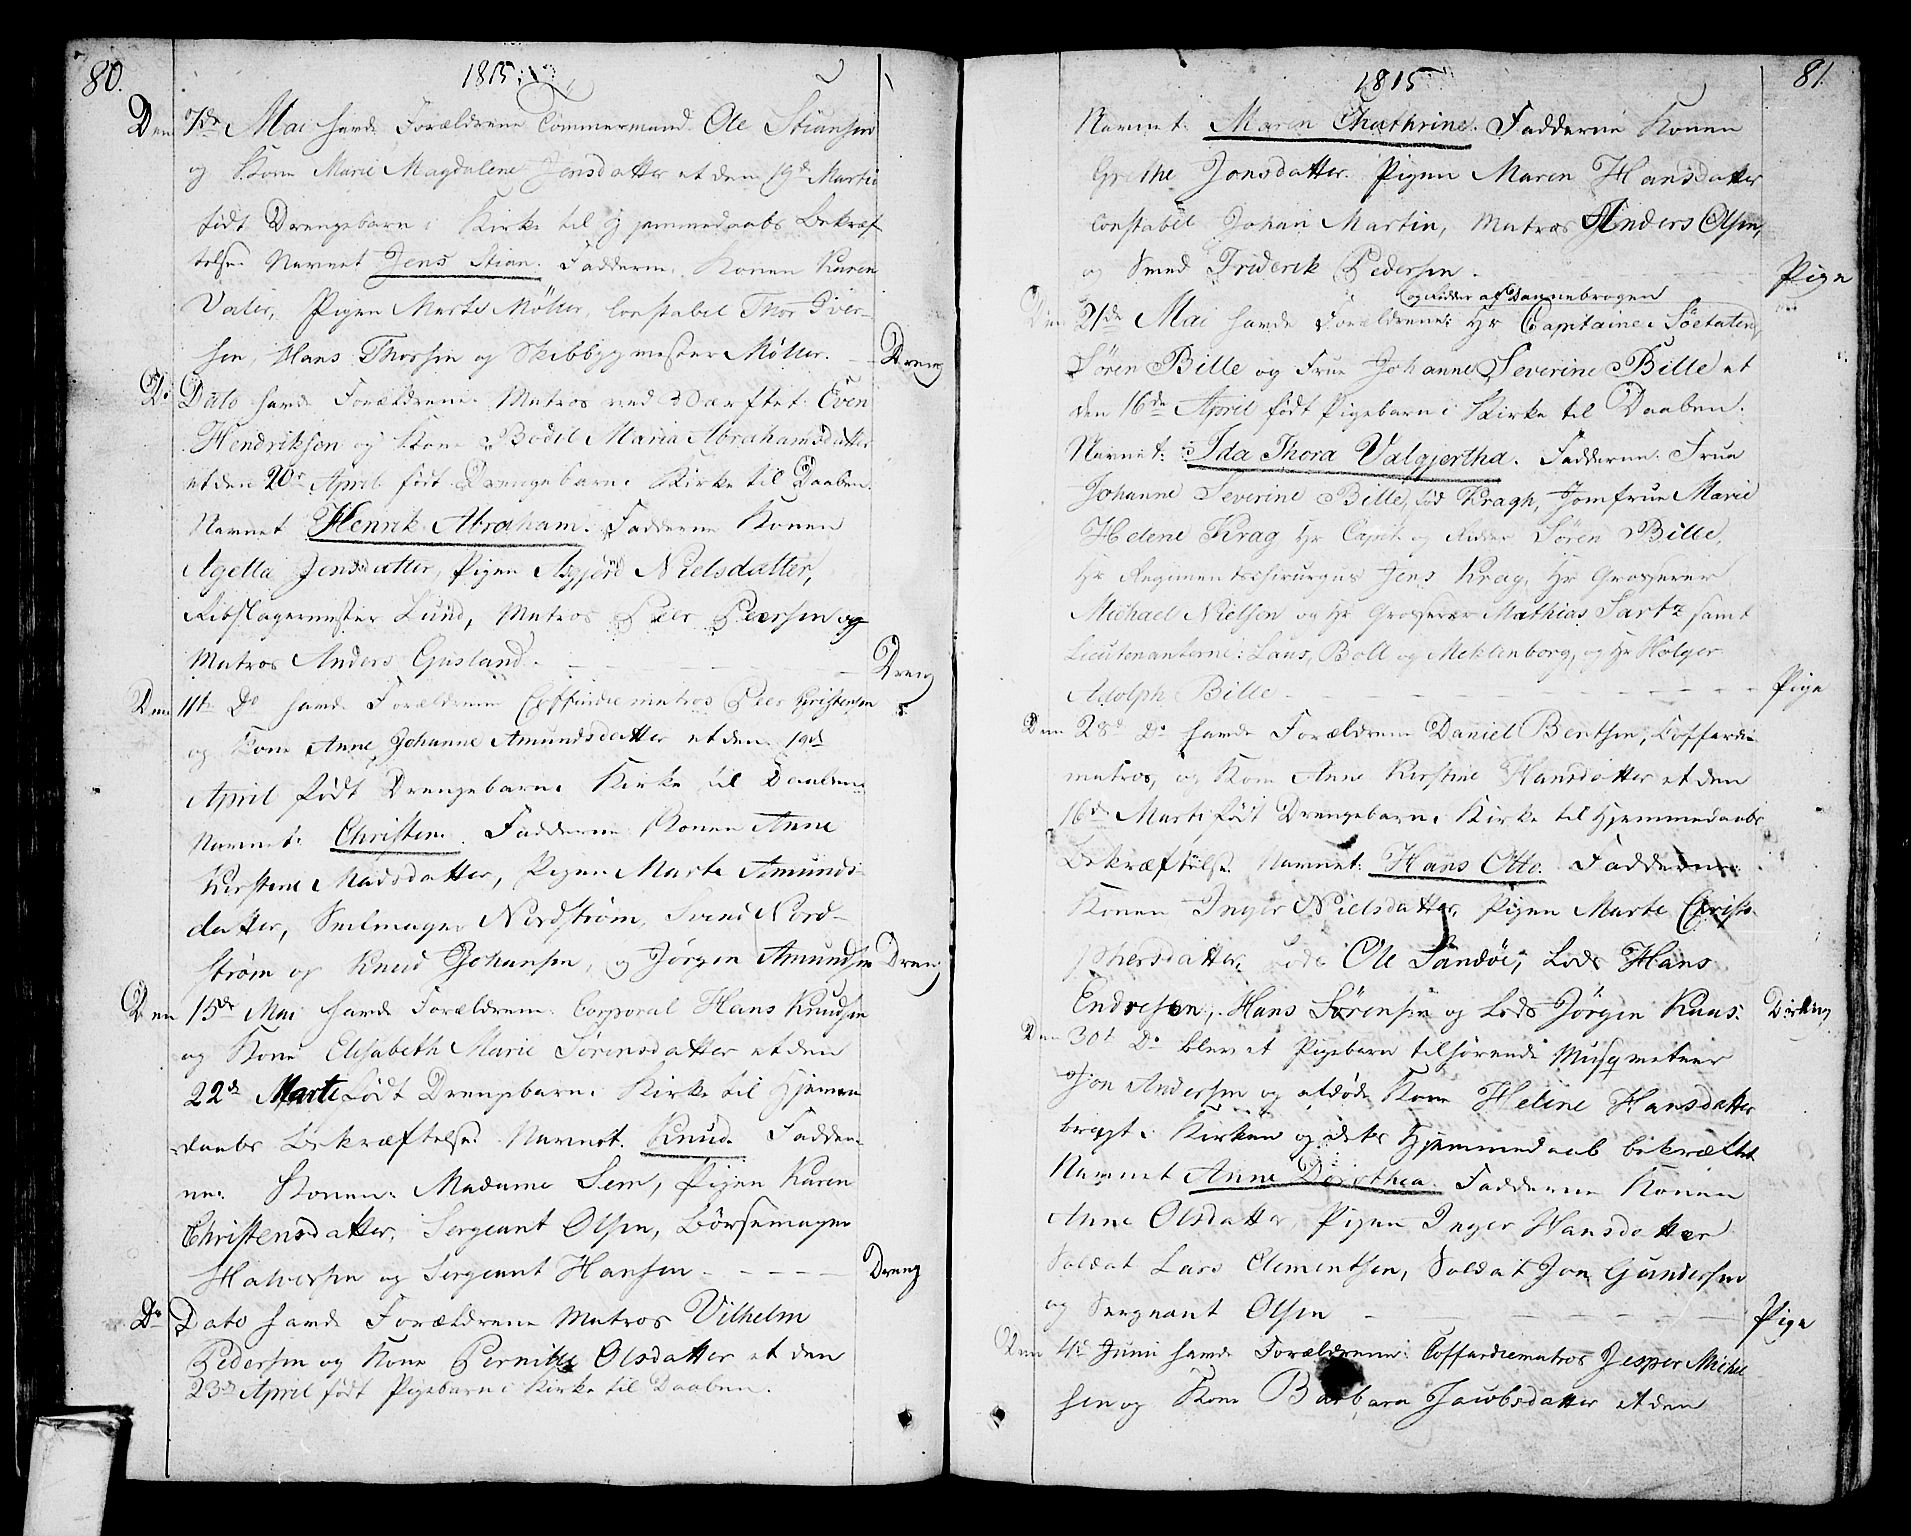 80.
1815.
Den 7de Mai havde Forældrene Tömmermand Ole Stiansen
og Kone Marie Magdalene Jensdatter et den 19d Martii
födt Drengebarn i Kirke til Hjemmedaabs Bekræf
telse. Navnet Jens Stian. Fadderne. Konen Karen
Valer, Pigen Marte Möller, Constabel Thor Iver-
sen, Hans Thorsen og Skibbygmester Møller. — Dreng
Do Dato havde Forældrene Matros ved Værftet Even
Hendriksen og Kone Bodil Maria Abrahamsdatter
et den 20de April födt Drengebarn i Kirke til Daaben.
Navnet Henrik Abraham. Fadderne Konen
Agella Jensdatter, Pigen Asgjörd Nielsdatter,
Ribslagermester Lund, Matros Peer Peersen og
Matros Anders Gusland. — Dreng
Den 11te Do havde Forældrene Coffardiematros Peer Christensen
og Kone Anne Johanne Amundsdatter et den 19d
April födt Drengebarn i Kirke til Daaben.
Navnet. Christen. Fadderne Konen Anne
Kirstine Madsdatter, Pigen Marte Amunds-
datter, Seilmager Nordström, Svend Nord-
ström og Knud Johansen, og Jörgen Amundsen Dreng
Den 15de Mai havde Forældrene. Corporal Hans Knudsen
og Kone Elisabeth Marie Sörensdatter et den
22de Marti födt Drengebarn i Kirke til Hjemme
daabs Bekræftelse. Navnet. Knud. Fadder-
ne. Konen. Madame Sem, Pigen Karen
Christensdatter, Sergeant Olsen, Börsemager
Halvorsen og Sergeant Hansen - - - - Dreng
Do Dato havde Forældrene Matros Vilhelm
Pedersen og Kone Pernille Olsdatter et den
23de April födt Pigebarn i Kirke til Daaben.
81.
1815
Navnet. Maren Chathrine. Fadderne Konen
Grethe Jonsdatter. Pigen Maren Hansdatter
Constabel Johan Martin, Matros Anders Olsen,
og Smed Friderik Pedersen. Pige
og Ridder af Dannebrogen
Den 21de Mai havde Forældrene: Hr Capitaine i Söetaten
Sören Bille og Frue Johanne Severine Bille et
den 16de April födt Pigebarn i Kirke til Daaben.
Navnet: Ida Thora Valgjertha. Fadderne. Frue
Johanne Severine Bille, föd Kragh, Jomfrue Marie
Helene Krag Hr Capit. og Ridder Sören Bille,
Hr Regimentschirurgus Jens Krag, Hr Grosserer
Michael Nielsen og Hr Grosserer Mathias Sartz samt
Lieutenanterne: Laus, Boll og Meklenborg, og Hr Holger
Adolph Bille - - - - Pige
Den 28d Do havde Forældrene Daniel Bentsen, Coffardi-
matros, og Kone Anne Kirstine Hansdatter et den
16de Marti födt Drengebarn i Kirke til Hjemmedaabs
Bekræftelse. Navnet: Hans Otto. Fadderne:
Konen Inger Nielsdatter, Pigen Marte Christo-
phersdatter, Lods Ole Sandöe, Lods Hans
Endresen, Hans Sörensen og Lods Jörgen Kaas. Dreng
Den 30d Do blev et Pigebarn tilhörende Musqueteer
Jon Andersen og afdöde Kone Heline Hansdatter
bragt i Kirken og dets Hjemmedaab bekræftet
Navnet Anne Dorthea. Fadderne Konen
Anne Olsdatter, Pigen Inger Hansdatter
Soldat Lars Clementsen, Soldat Jon Gundersen
og Sergeant Olsen — Pige
Den 4de Juni havde Forældrene: Coffardiematros Jesper Mickel
sen og Kone Barbara Jacobsdatter et den